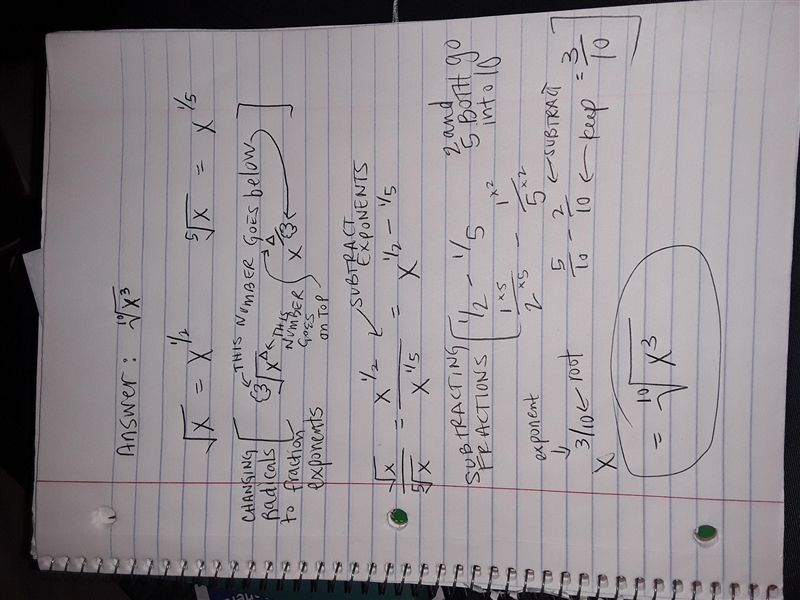 Answer: ¹⁰√x³
√x = x^1/2   ⁵√x = x^1/5
CHANGING Radicals to fraction exponents
[ {3}√x^Δ
← THIS NUMBER GOES below
← THIS NUMBER GOES on Top
x^Δ/{3} ]
√x / ⁵√x = x^1/2 / x^1/5 = x^1/2 - 1/5
← SUBTRACT EXPONENTS
SUBTRACTING FRACTIONS [ 1/2 - 1/5
2 and 5 BOTH go into 10
1 ×5 / 2 ×5 - 1 ×2 / 5 ×2
5/10 - 2/10 ← SUBTRACT ← keep = 3/10 ]
exponent
↓
x^3/10 ← root
= ¹⁰√x³